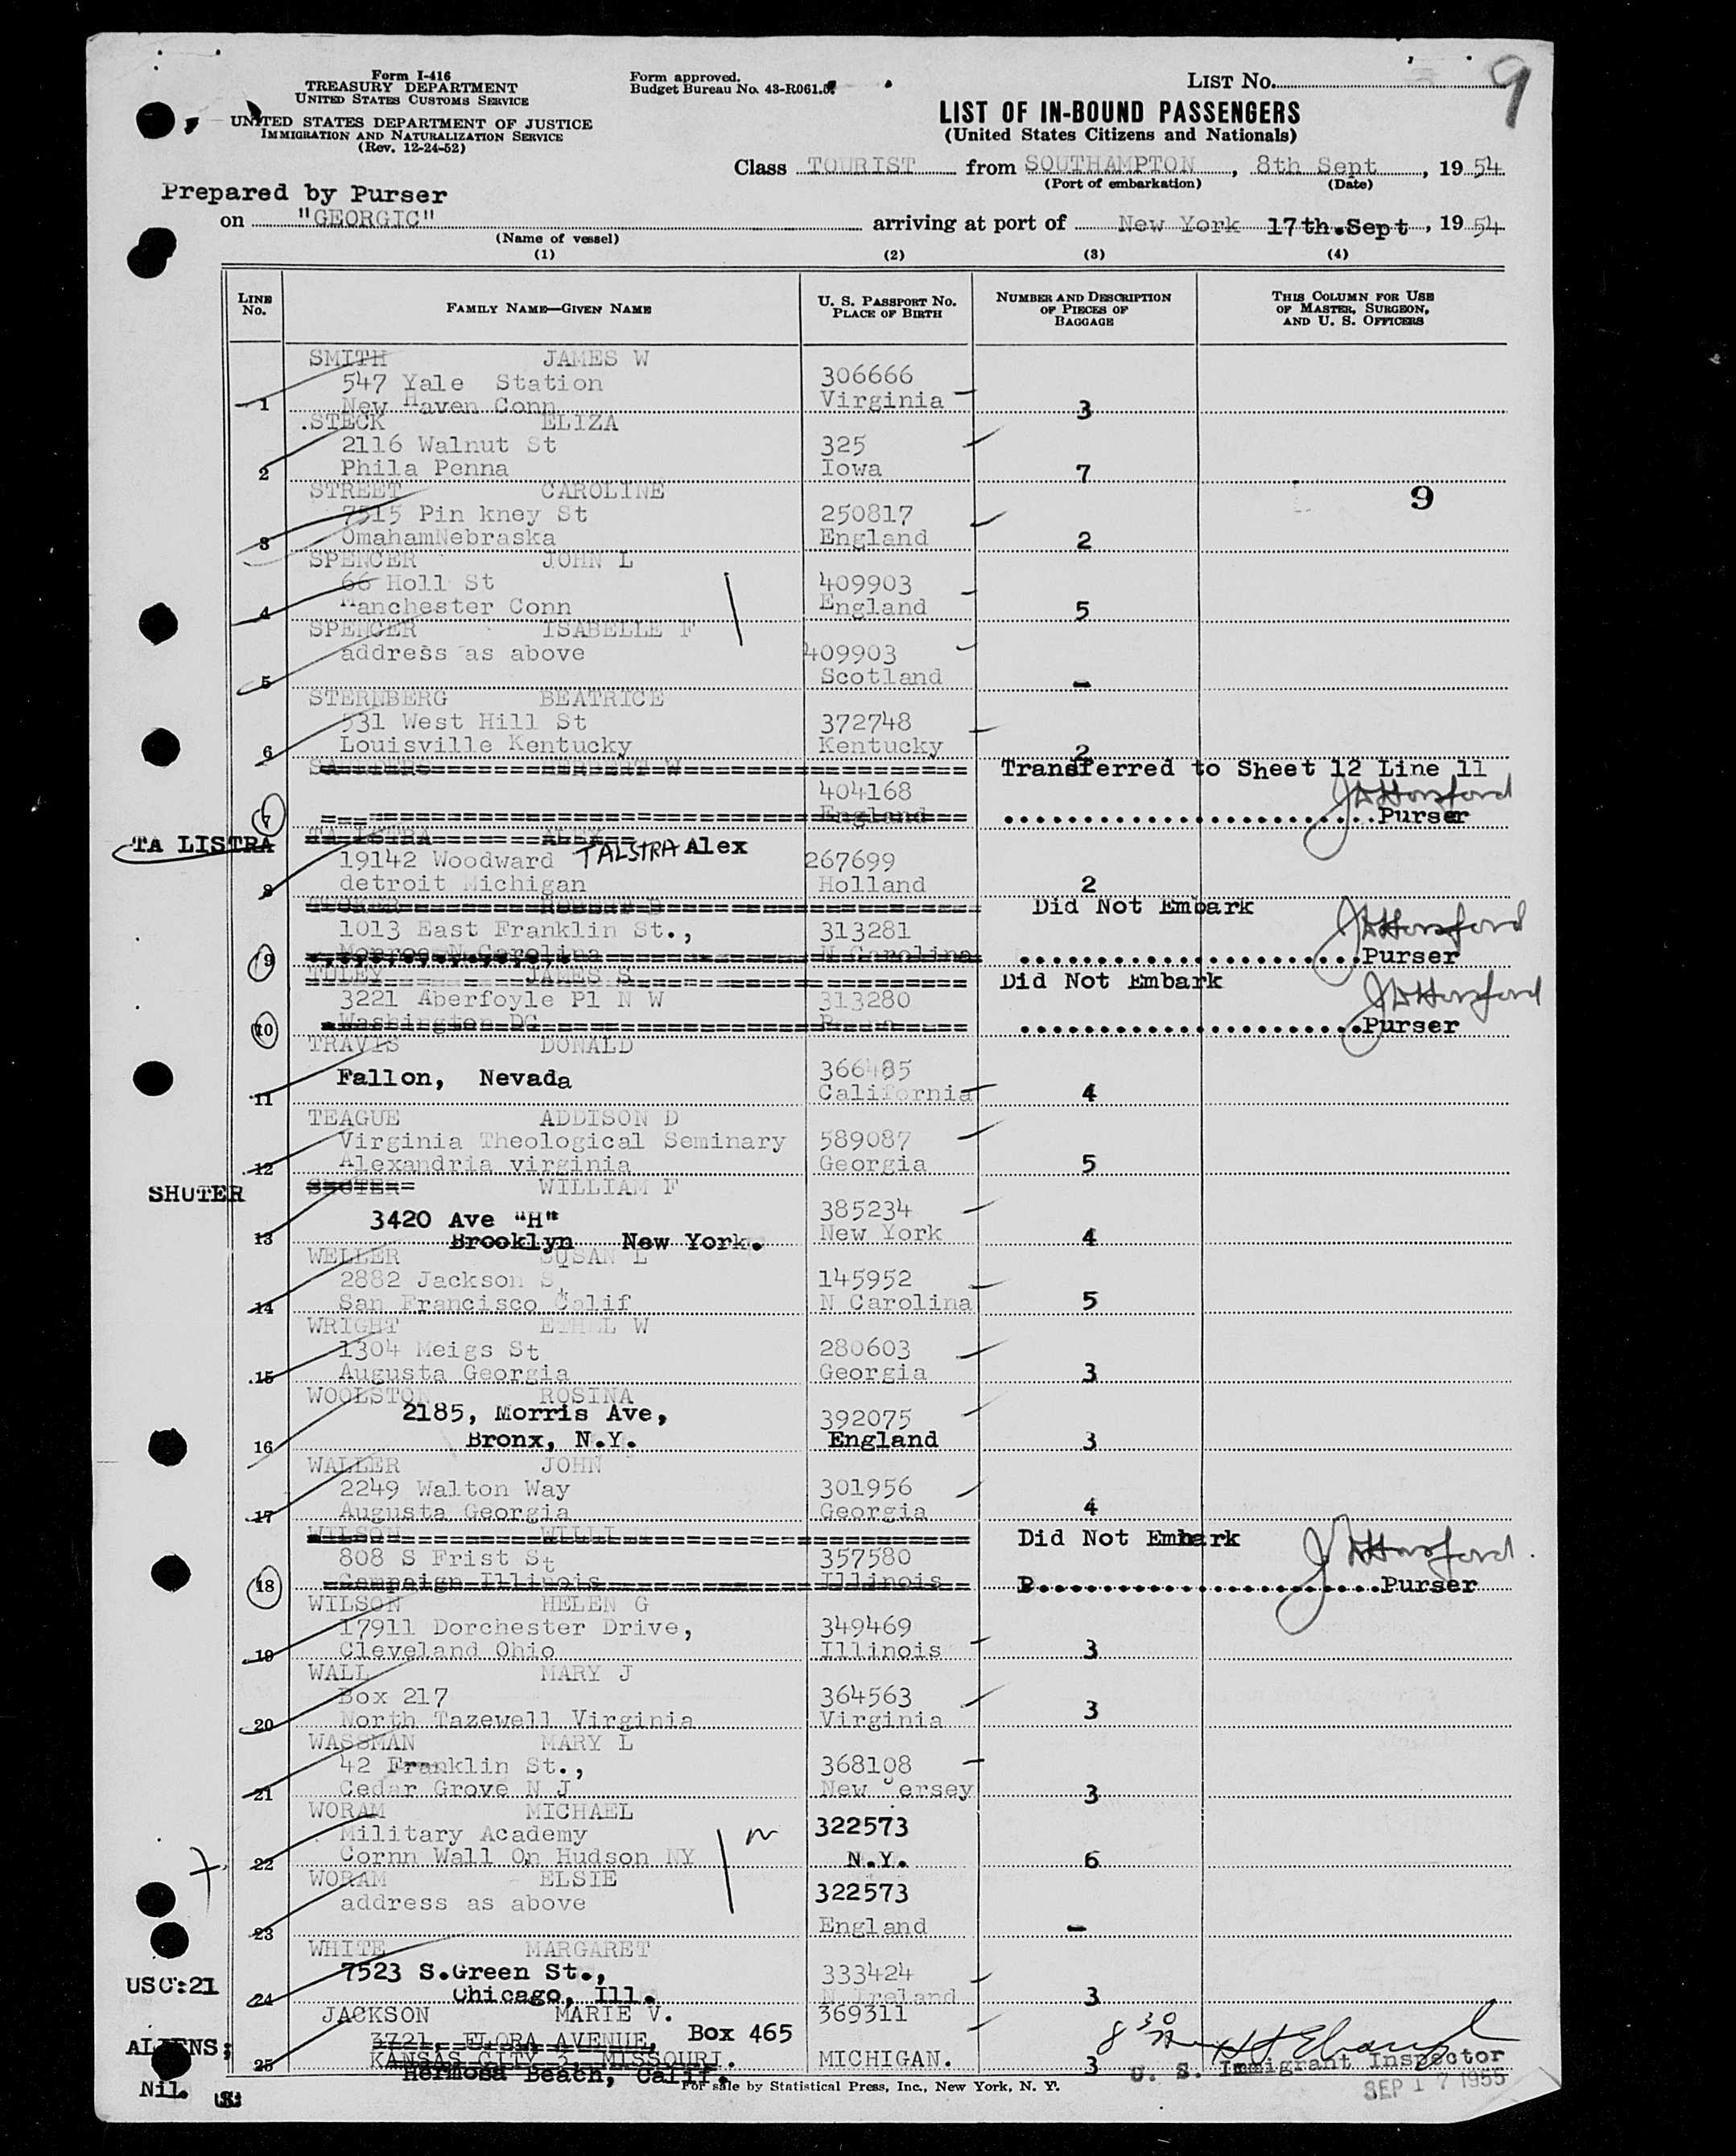 9
Form I-416
TREASURY DEPARTMENT
UNITED STATES CUSTOMS SERVICE
UNITED STATES DEPARTMENT OF JUSTICE
IMMIGRATION AND NATURALIZATION SERVICE
(Rev. 12-24-52)
Form approved.
Budget Bureau No. 43-R061.5.
LIST NO.
LIST OF IN-BOUND PASSENGERS
(United States Citizens and Nationals)
Class TOURIST from SOUTHAMPTON, 8th Sept, 19 54
(Port of embarkation) (Date)
Prepared by Purser
on "GEORGIC" arriving at port of New York 17th.Sept, 19 54
(Name of vessel)
(1) (2) (3) (4)
LINE No. FAMILY NAME—GIVEN NAME U. S. PASSPORT NO. PLACE OF BIRTH NUMBER AND DESCRIPTION OF PIECES OF BAGGAGE THIS COLUMN FOR USE OF MASTER, SURGEON, AND U. S. OFFICERS
SMITH JAMES W
547 Yale Station 306666
1 New Haven Conn Virginia 3
STECK ELIZA
2116 Walnut St 325
2 Phila Penna Iowa 7
STREET CAROLINE 9
7515 Pin kney St 250817
3 OmahamNebraska England 2
SPENCER JOHN L
66 Holl St 409903
4 Manchester Conn England 5
SPENCER ISABELLE F
address as above 409903
5 Scotland -
STERNBERG BEATRICE
531 West Hill St 372748
6 Louisville Kentucky Kentucky 2
Transferred to Sheet 12 Line 11
404168
7 England Purser
TA LISTRA TA LSTRA ALEX
19142 Woodward TALSTRA Alex 267699
8 detroit Michigan Holland 2
Did Not Embark
1013 East Franklin St., 313281
9 Monroe N Carolina N Carolina Purser
TOLEY JAMES S Did Not Embark
3221 Aberfoyle Pl N W 313280
10 Washington DC Purser
TRAVIS DONALD
Fallon, Nevada 366485
11 California 4
TEAGUE ADDISON D
Virginia Theological Seminary 589087
12 Alexandria virginia Georgia 5
SHUTER SHUTER WILLIAM F
3420 Ave "H" 385234
13 Brooklyn New York. New York 4
WELLER SUSAN L
2882 Jackson S 145952
14 San Francisco Calif N Carolina 5
WRIGHT ETHEL W
1304 Meigs St 280603
15 Augusta Georgia Georgia 3
WOOLSTON ROSINA
2185, Morris Ave, 392075
16 Bronx, N.Y. England 3
WALLER JOHN
2249 Walton Way 301956
17 Augusta Georgia Georgia 4
WILSON Did Not Embark
808 S Frist St 357580
18 Campaign Illinois Illinois P Purser
WILSON HELEN G
17911 Dorchester Drive, 349469
19 Cleveland Ohio Illinois 3
WALL MARY J
Box 217 364563
20 North Tazewell Virginia Virginia 3
WASSMAN MARY L
42 Franklin St., 368108
21 Cedar Grove N J New Jersey 3
WORAM MICHAEL
Military Academy 322573
22 Cornn Wall On Hudson NY N.Y. 6
WORAM ELSIE
address as above 322573
23 England -
WHITE MARGARET
USC:21 7523 S.Green St., 333424
24 Chicago, Ill. N Ireland 3
JACKSON MARIE V. 369311
ALIENS; 3721, FLORA AVENUE, Box 465
25 KANSAS CITY 3, MISSOURI. MICHIGAN. 3 U. S. Immigrant Inspector
Nil. Hermosa Beach, Calif.
For sale by Statistical Press, Inc., New York, N. Y.
SEP 17 1955